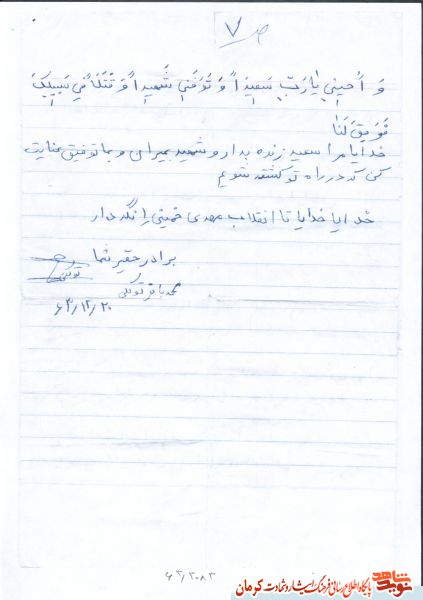 ص ۷
وَ اَحیِنی یا رَبِّ سَعیداً وَ تَوَفَّنی شَهیداً وَ قَتلاً فی سَبیلِکَ
فَوَفِّق لَنا
خدایا مرا سعید زنده بدار و شهید بمیران و بما توفیق عنایت
کن که در راه تو کشته شویم
خدایا خدایا تا انقلاب مهدی خمینی را نگه دار
برادر حقیر شما
محمدباقر توکلی
توکلی
۶۳/۱۲/۲۰
۶۳/۲۰۸۳
نوید شاهد
پایگاه اطلاع رسانی فرهنگ ایثار و شهادت کرمان